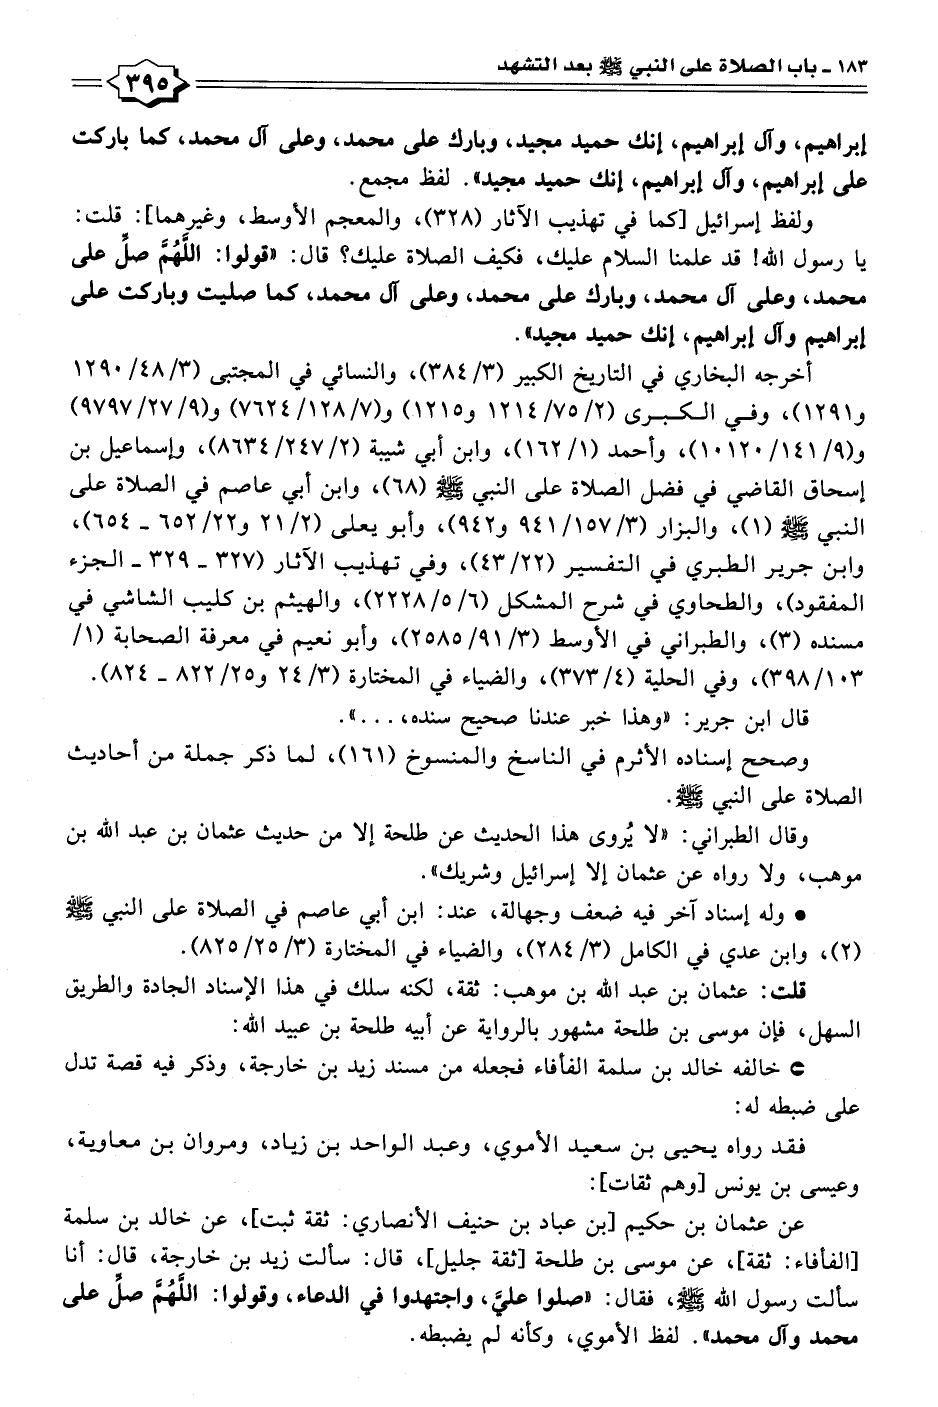 ١٨٣ - باب الصلاة على النبي ﷺ بعد التشهد
٣٩٥
إبراهيم، وآل إبراهيم، إنك حميد مجيد، وبارك على محمد، وعلى آل محمد، كما باركت
على إبراهيم، وآل إبراهيم، إنك حميد مجيد». لفظ مجمع.
ولفظ إسرائيل [كما في تهذيب الآثار (٣٢٨)، والمعجم الأوسط، وغيرهما]: قلت:
يا رسول الله! قد علمنا السلام عليك، فكيف الصلاة عليك؟ قال: «قولوا: اللَّهُمَّ صلِّ على
محمد، وعلى آل محمد، وبارك على محمد، وعلى آل محمد، كما صليت وباركت على
إبراهيم وآل إبراهيم، إنك حميد مجيد».
أخرجه البخاري في التاريخ الكبير (٣/ ٣٨٤)، والنسائي في المجتبى (٣/ ٤٨/ ١٢٩٠
و١٢٩١)، وفي الكبرى (٢/ ٧٥/ ١٢١٤ و١٢١٥) و(٧/ ١٢٨/ ٧٦٢٤) و(٩/ ٢٧/ ٩٧٩٧)
و(٩/ ١٤١/ ١٠١٢٠)، وأحمد (١/ ١٦٢)، وابن أبي شيبة (٢/ ٢٤٧/ ٨٦٣٤)، وإسماعيل بن
إسحاق القاضي في فضل الصلاة على النبي ﷺ (٦٨)، وابن أبي عاصم في الصلاة على
النبي ﷺ (١)، والبزار (٣/ ١٥٧/ ٩٤١ و٩٤٢)، وأبو يعلى (٢/ ٢١ و٢٢/ ٦٥٢ - ٦٥٤)،
وابن جرير الطبري في التفسير (٢٢/ ٤٣)، وفي تهذيب الآثار (٣٢٧ - ٣٢٩ - الجزء
المفقود)، والطحاوي في شرح المشكل (٦/ ٥/ ٢٢٢٨)، والهيثم بن كليب الشاشي في
مسنده (٣)، والطبراني في الأوسط (٣/ ٩١/ ٢٥٨٥)، وأبو نعيم في معرفة الصحابة (١/
١٠٣/ ٣٩٨)، وفي الحلية (٤/ ٣٧٣)، والضياء في المختارة (٣/ ٢٤ و٢٥/ ٨٢٢ - ٨٢٤).
قال ابن جرير: «وهذا خبر عندنا صحيح سنده، ...».
وصحح إسناده الأثرم في الناسخ والمنسوخ (١٦١)، لما ذكر جملة من أحاديث
الصلاة على النبي ﷺ.
وقال الطبراني: «لا يُروى هذا الحديث عن طلحة إلا من حديث عثمان بن عبد الله بن
موهب، ولا رواه عن عثمان إلا إسرائيل وشريك».
• وله إسناد آخر فيه ضعف وجهالة، عند: ابن أبي عاصم في الصلاة على النبي ﷺ
(٢)، وابن عدي في الكامل (٣/ ٢٨٤)، والضياء في المختارة (٣/ ٢٥/ ٨٢٥).
قلت: عثمان بن عبد الله بن موهب: ثقة، لكنه سلك في هذا الإسناد الجادة والطريق
السهل، فإن موسى بن طلحة مشهور بالرواية عن أبيه طلحة بن عبيد الله:
⊂ خالفه خالد بن سلمة الفأفاء فجعله من مسند زيد بن خارجة، وذكر فيه قصة تدل
على ضبطه له:
فقد رواه يحيى بن سعيد الأموي، وعبد الواحد بن زياد، ومروان بن معاوية،
وعيسى بن يونس [وهم ثقات]:
عن عثمان بن حكيم [بن عباد بن حنيف الأنصاري: ثقة ثبت]، عن خالد بن سلمة
[الفأفاء: ثقة]، عن موسى بن طلحة [ثقة جليل]، قال: سألت زيد بن خارجة، قال: أنا
سألت رسول الله ﷺ، فقال: «صلوا عليَّ، واجتهدوا في الدعاء، وقولوا: اللَّهُمَّ صلِّ على
محمد وآل محمد». لفظ الأموي، وكأنه لم يضبطه.